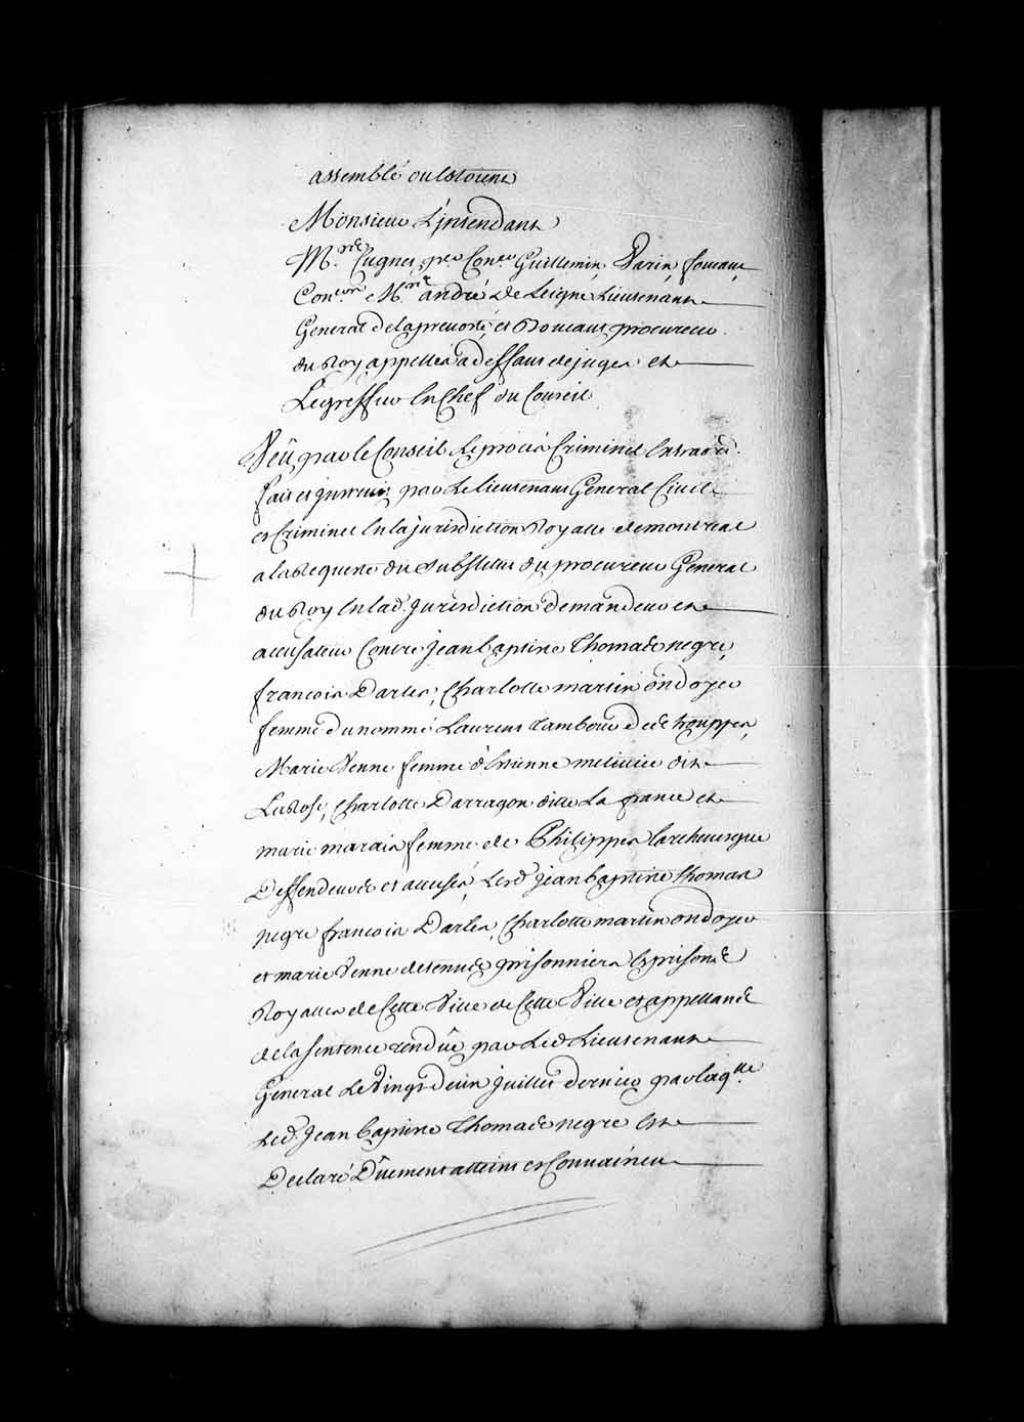 assemblé ou Estoient
Monsieur L'jntendant
M.rs Cugnet, p.er Con.er Guillemin, Varin, foucault
Con.ers M.re andré de Leigne Lieutenant
General de la prevosté, et Boucault procureur
du Roy appellés a deffaut de juges et
Le greffier En Chef du Conseil
Veû par le Conseil Le procés Criminel Extraord.
fait et jnstruit par Le lieutenant General Civil
et Criminel En la jurisdiction Royalle de montreal
a la Requeste du substitut du procureur General
du Roy En lad. Jurisdiction demandeur et
accusateur Contre Jean baptiste Thomas negre,
francois Darles, Charlotte martin ondoyer
femme du nommé Laurent tambour des trouppes,
Marie Venne femme d'Estienne metivier dit
LaRose, Charlotte Darragon ditte La france et
marie marais femme de Philippes larchevesque
Deffendeurs et accusés, Lesd Jean baptiste thomas
negre francois Darles, Charlotte martin ondoyer
et marie Venne detenus prisonniers Es prisons
Royalles de Cette Ville de Cette Ville et appellans
de la sentence rendûe par Led Lieutenant
General Le Vingt deux juillet dernier par laq.lle
Led. Jean baptiste Thomas negre Est
Declaré Dûement atteint et Convaincu